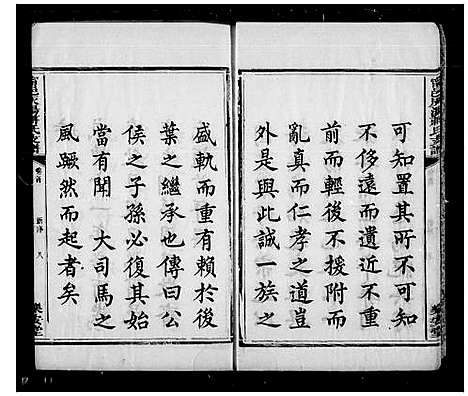 可知置其所不可知
不侈遠而遺近不重
前而輕後不援附而
亂真而仁孝之道豈
外是與此誠一族之
盛軌而重有賴於後
葉之繼承也傳曰公
侯之子孫必復其始
當有聞 大司馬之
風蹶然而起者矣
卷首
新序
八